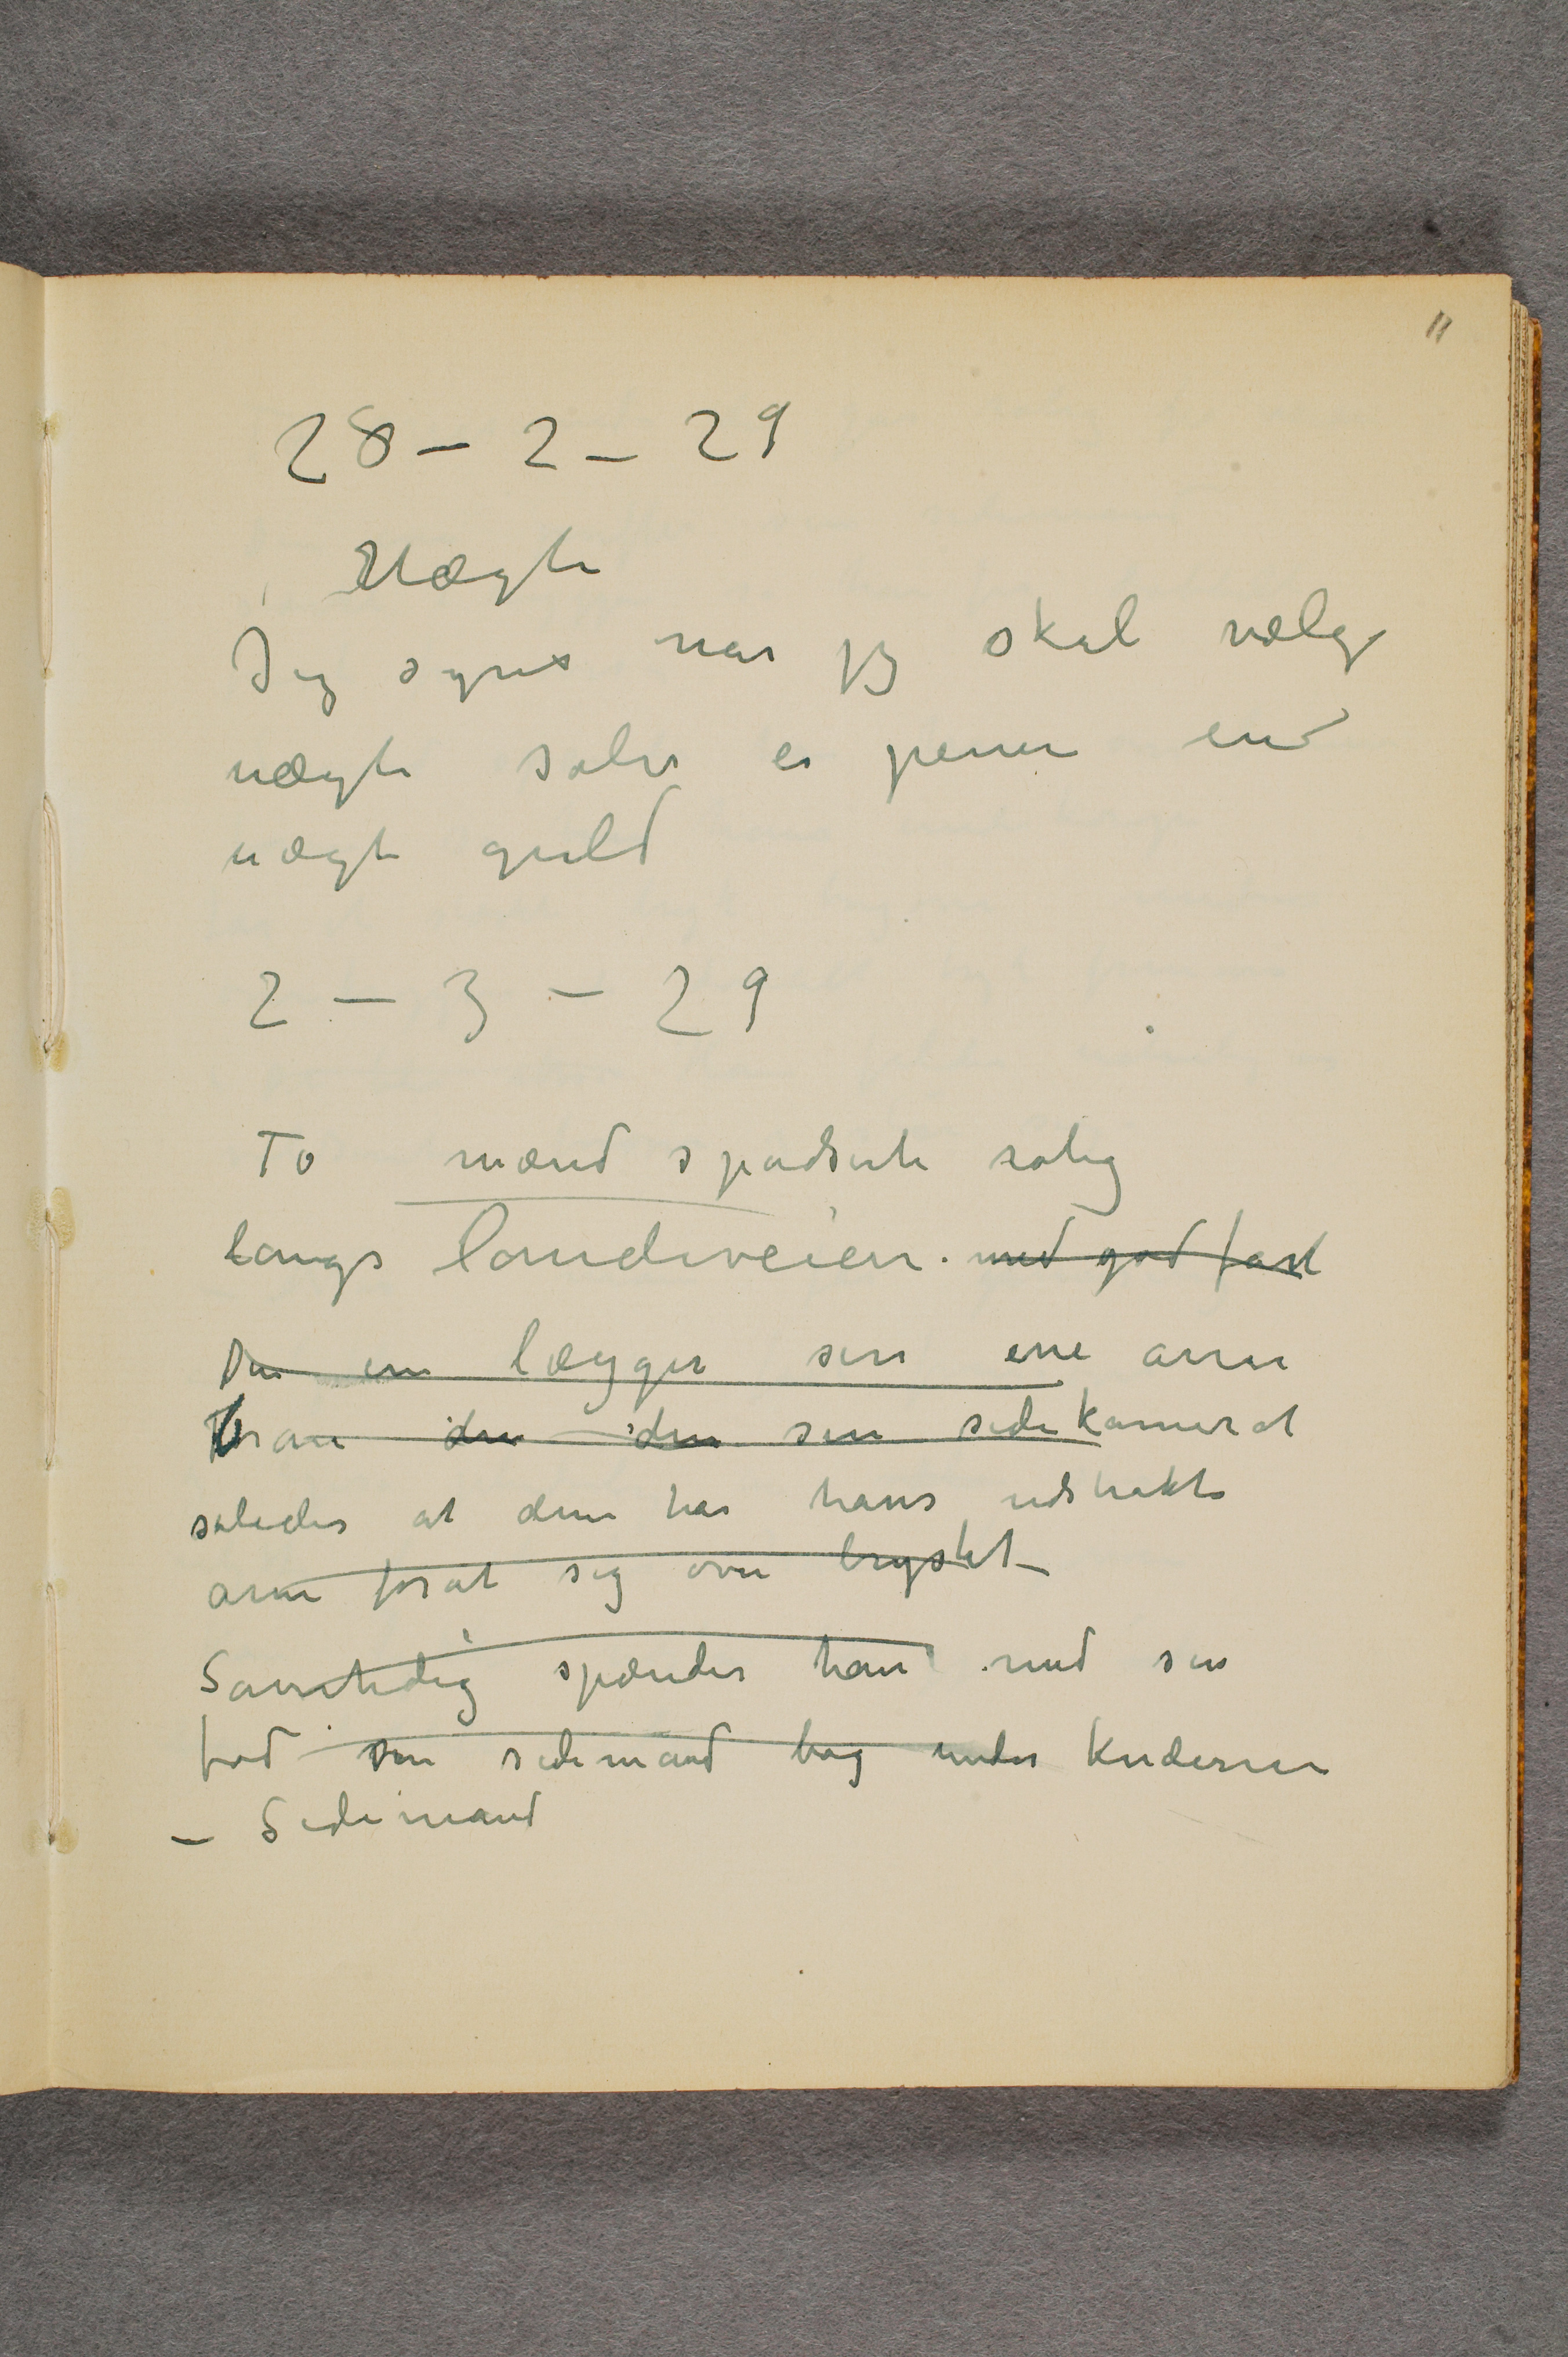 11
28 – 2 – 29
Uægte
Jeg synes når jeg skal vælge
uægte sølv er penere end
uægte guld
2 – 3 – 29
To mænd spadserte rolig
langs landeveien. med god fart
Den ene lægger sin ene arm
foran den den sin sidekamerat
således at denne har hans udstrakte
arm foran sig over brystet –
Samtidig spænder han med sin
fod sin sidemand bag under knæerne
– Sidemand